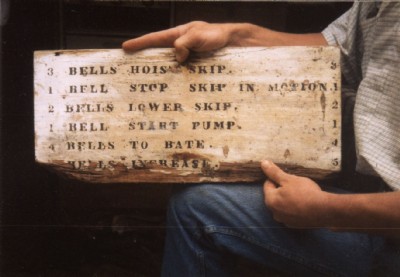 3 BELLS HOIST SKIP. 3
1 BELL STOP SKIP IN MOTION. 1
2 BELLS LOWER SKIP. 2
1 BELL START PUMP. 1
4 BELLS TO BATE. 4
BELLS INCREASE. 5